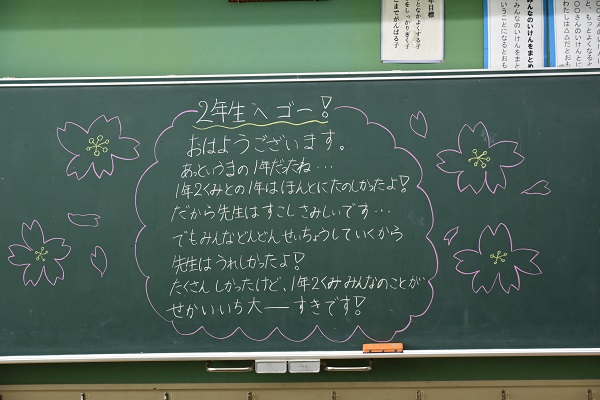 2年生へゴー!
おはようございます。
あっというまの1年だったね…
1年2くみとの1年はほんとにたのしかったよ!
だから先生はすこしさみしいです…
でもみんなどんどんせいちょうしていくから
先生はうれしかったよ!
たくさんしかったけど、1年2くみみんなのことが
せかいいち大――すきです!
年目標
となかよくする子
をしっかりきく子
こまでがんばる子